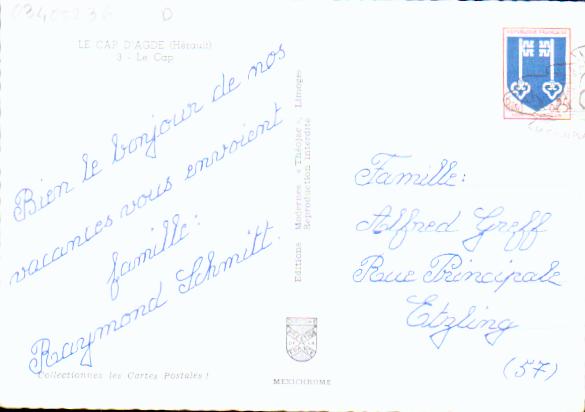 03400236 D
LE CAP D'AGDE (Hérault)
3 - Le Cap
Bien le bonjour de nos
vacances vous envoient
famille:
Raymond Schmitt.
Collectionnez les Cartes Postales !
Editions Modernes « Théojac », Limoges
Reproduction interdite
MEXICHROME
REPUBLIQUE FRANÇAISE
0,25
Famille:
Alfred Greff
Rue Principale
Etzling
(57)